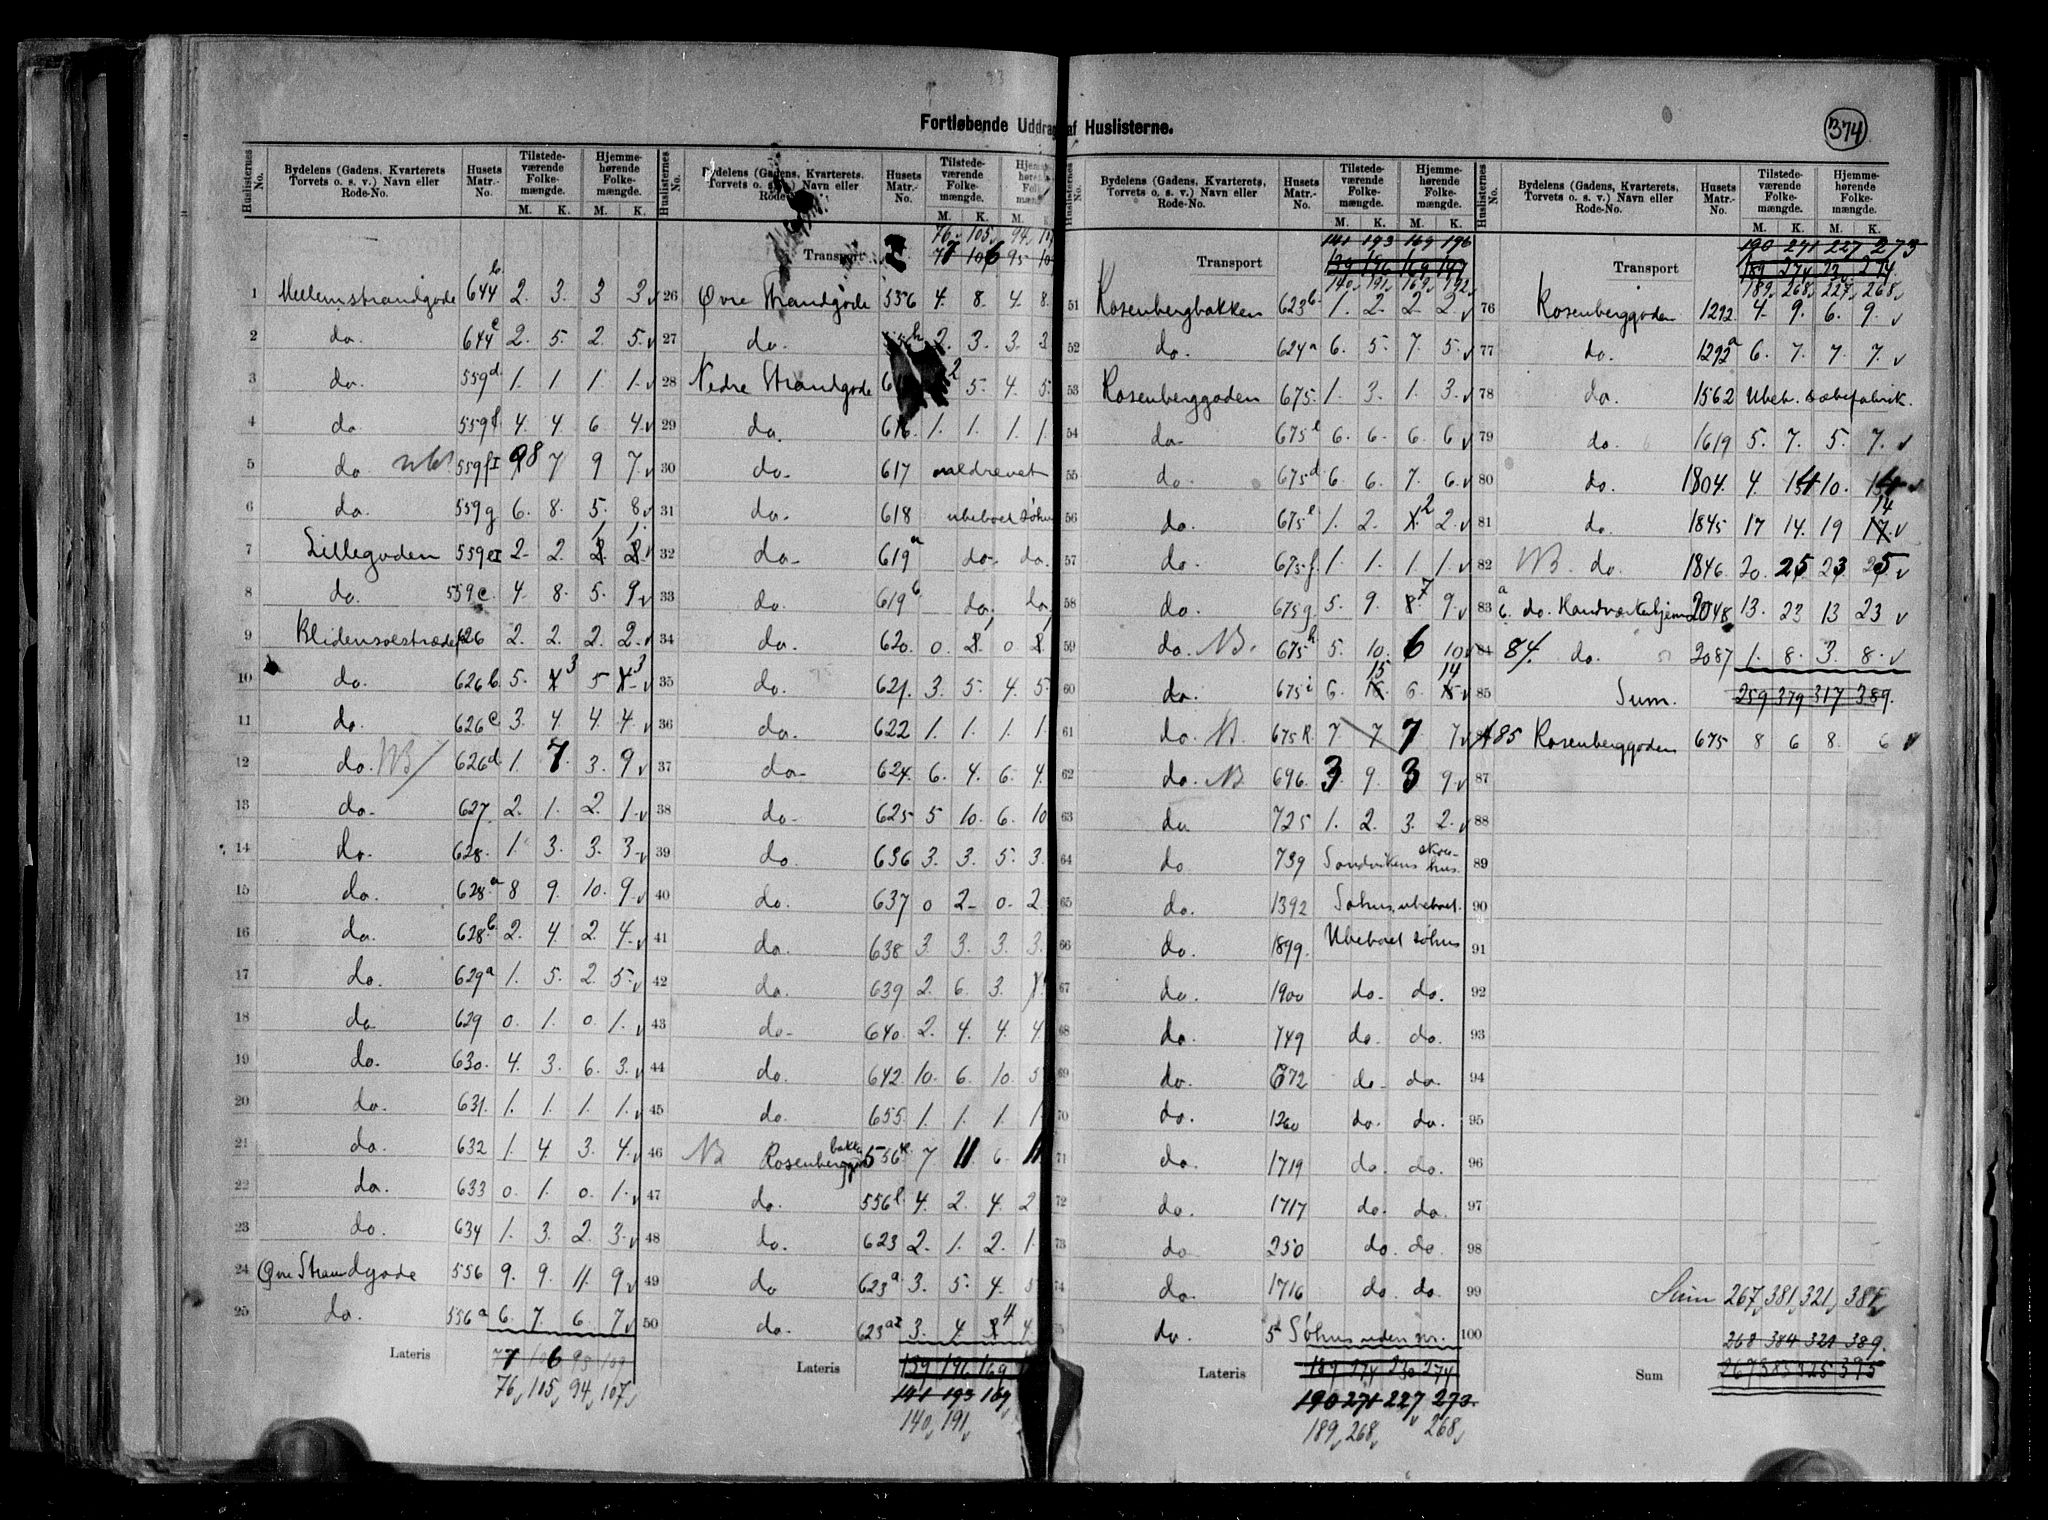 Fortløbende Uddrag af Huslisterne.
374
Huslisternes No. Bydelens (Gadens, Kvarterets Torvets o. s. v.) Navn eller Rode-No. Husets Matr.-No. Tilstedeværende Folkemængde. M. K. Hjemmehørende Folkemængde. M. K.
1 Mellemstrandgade 644b 2. 3. 3 3
2 do. 644c 2. 5. 2. 5.
3 do. 559d 1. 1. 1. 1.
4 do 559f. 4. 4. 6. 4.
5 do. 559fI 8 7 9 7.
6 do. 559g 6. 8. 5. 8
7 Lillegaden 559eI 2. 2. 1 1
8 do. 559e. 4. 8. 5. 9
9 Blidensolstrædet 626 2. 2. 2. 2.
10 do. 626b. 5. 3 5 3
11 do. 626c 3. 4. 4. 4.
12 do. NB 626d. 1. 7. 3. 9
13 do. 627. 2. 1. 2. 1.
14 do. 628. 1. 3. 3. 3
15 do. 628a 8 9. 10. 9
16 do. 628b 2. 4. 2. 4.
17 do. 629a 1. 5. 2. 5.
18 do. 629 0. 1. 0. 1.
19 do. 630. 4. 3. 6. 3.
20 do. 631. 1. 1. 1. 1.
21 do. 632 1. 4. 3. 4.
22 do. 633 0. 1. 0. 1.
23 do. 634 1. 3. 2. 3.
24 Øvre Strandgade 556 9. 9. 11. 9
25 do. 556a 6. 7. 6. 7
Lateris 77 106 95 109
76, 105, 94, 107,
Huslisternes No. Bydelens (Gadens, Kvarterets. Torvets o. s. v.) Navn eller Rode Husets Matr.-No. Tilstedeværende Folkemængde. M. K.
76. 105. 94.
Transport 77 106 95
26 Øvre Strandgade 556 4. 8. 4. 8.
27 do. 2. 3. 3. 3
28 Nedre Strandgade 2 5. 4. 5.
29 do. 616. 1. 1. 1. 1.
30 do. 617
31 do. 618 ubeboet
32 do. 619a do. do.
33 do. 619b do. do.
34 do. 620. 0. 1 0
35 do. 621. 3. 5. 4. 5.
36 do. 622 1. 1. 1. 1.
37 do. 624. 6. 4. 6. 4.
38 do. 625 5 10. 6. 10
39 do. 636 3. 3. 5. 3.
40 do. 637 0 2. 0. 2.
41 do. 638 3. 3. 3. 3.
42 do. 639 2. 6. 3.
43 do. 640. 2. 4. 4. 4
44 do. 642 10. 6. 10.
45 do. 655. 1. 1. 1. 1
46 NB Rosenberg bakken 556 7 11 6. 11
47 do. 556f. 4. 2. 4. 2
48 do. 623 2. 1. 2. 1.
49 do 623a. 3. 5. 4.
50 do. 623aI 3. 4 4 4.
Lateris 139 196 169
141 193 169
140, 191,
Bydelens (Gadens, Kvarterets, Torvets o. s. v.) Navn eller Rode-No. Husets Matr.-No. Tilstedeværende Folkemængde. M. K. Hjemmehørende Folkemængde. M. K.
141 193 169 196
Transport 139 196 169 197
140, 191, 169, 192,
51 Rosenbergbakken 623b. 1. 2. 2. 2.
52 do. 624a 6. 5. 7. 5.
53 Rosenberggaden 675. 1. 3. 1. 3.
54 do. 6. 6. 6. 6
55 do. 675d. 6. 6. 7. 6.
56 do. 675e 1. 2. 2 2.
57 do. 675f. 1. 1. 1. 1.
58 do. 675g 5. 9. 7 9.
59 do. NB. 675h 5. 10. 6 10
60 do. 675i 6. 15 6. 14
61 do. NB. 675k. 7 7 7 7
62 do. NB. 696. 3. 9. 3 9.
63 do. 725 1. 2. 3. 2.
64 do 739 Sandvikens
65 do. 1392 Søhus, ubeboet.
66 do. 1899. Ubeboet søhus
67 do. 1900 do. do.
68 do. 749 do. do.
69 do. 672 do. do.
70 do. 1260 do. do.
71 do. 1719 do. do.
72 do. 1717 do. do.
73 do 250 do. do.
74 do. 1716 do. do.
75 do. 5 Søhus uden nr.
Lateris 189 274 230 274
190 271 227 273.
189, 268, 268,
Huslisternes No. Bydelens (Gadens, Kvarterets, Torvets o. s. v.) Navn eller Rode-No. Husets Matr.-No. Tilstedeværende Folkemængde. M. K. Hjemmehørende Folkemængde. M. K.
190 271 227 273
Transport 189 274 230 274
189, 268, 227, 268,
76 Rosenberggaden 1292 4. 9. 6. 9.
77 do. 1292a 6. 7. 7. 7.
78 do. 1562 Ubeb. sæbefabrik.
79 do. 1619 5. 7. 5. 7.
80 do. 1804. 4. 14 10. 14
81 do. 1845 17 14. 19 14
82 NB. do. 1846. 20. 25 23 25
83 do. Haandværkerhjem 2048 13. 23 13 23
84. do. 2087 1. 8. 3. 8.
85 Sum. 259 379 317 389.
85 Rosenberggaden 675 8 6 8. 6
87
88
89
90
91
92
93
94
95
96
97
98
99
Sum 267, 381, 321,
100 268 384 321 389.
Sum